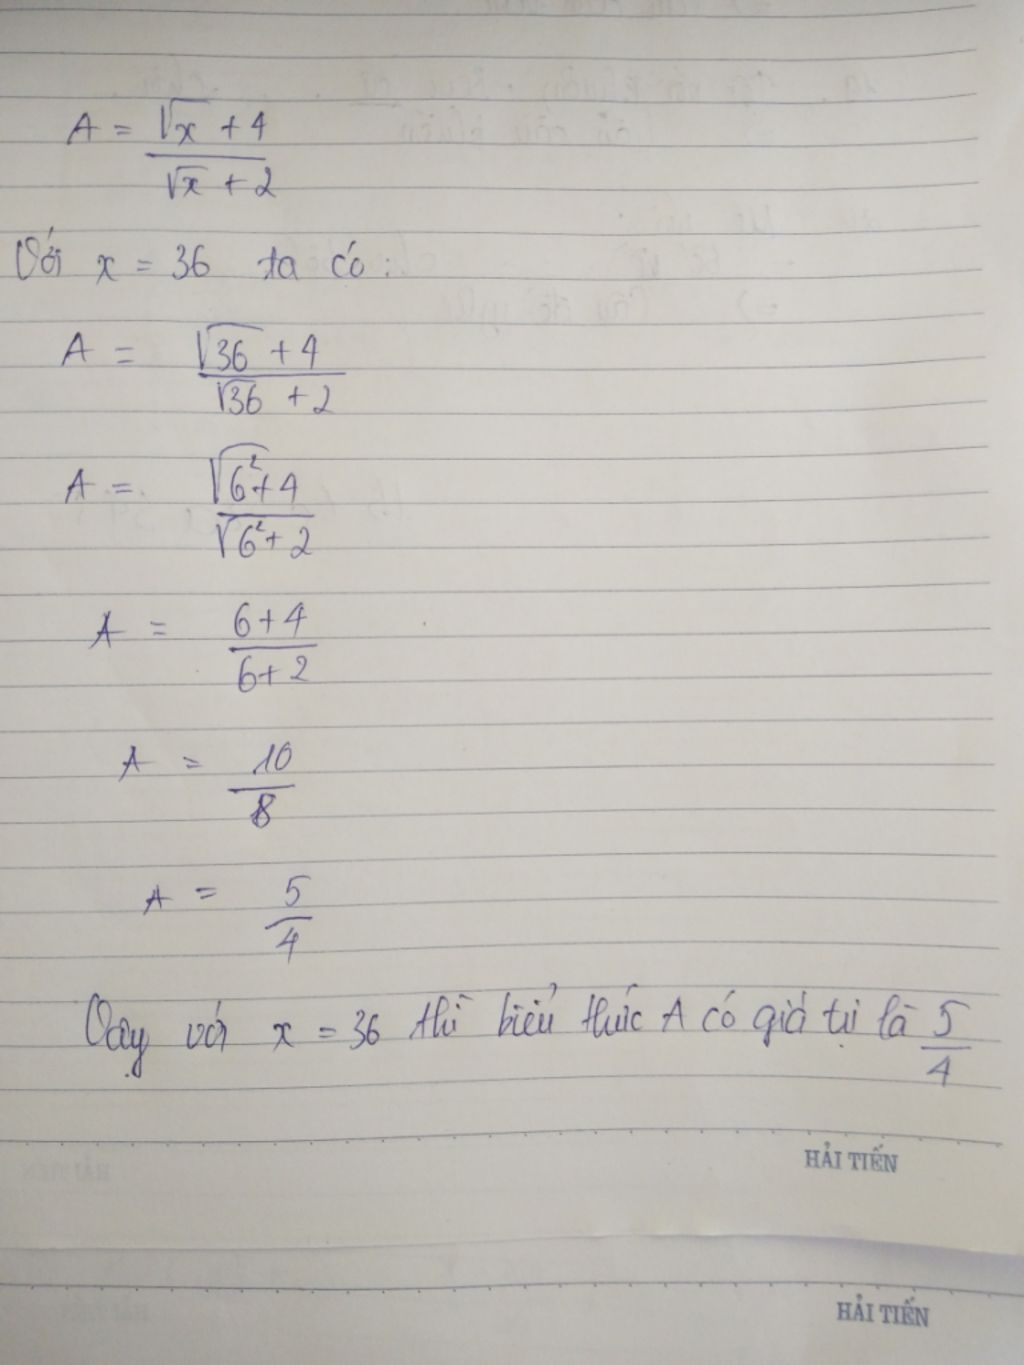 A = √x + 4 / √x + 2
Với x = 36 ta có:
A = √36 + 4 / √36 + 2
A = √6² + 4 / √6² + 2
A = 6+4 / 6+2
A = 10 / 8
A = 5 / 4
Vậy với x = 36 thì biểu thức A có giá tị là 5/4
HẢI TIẾN
HẢI TIẾN